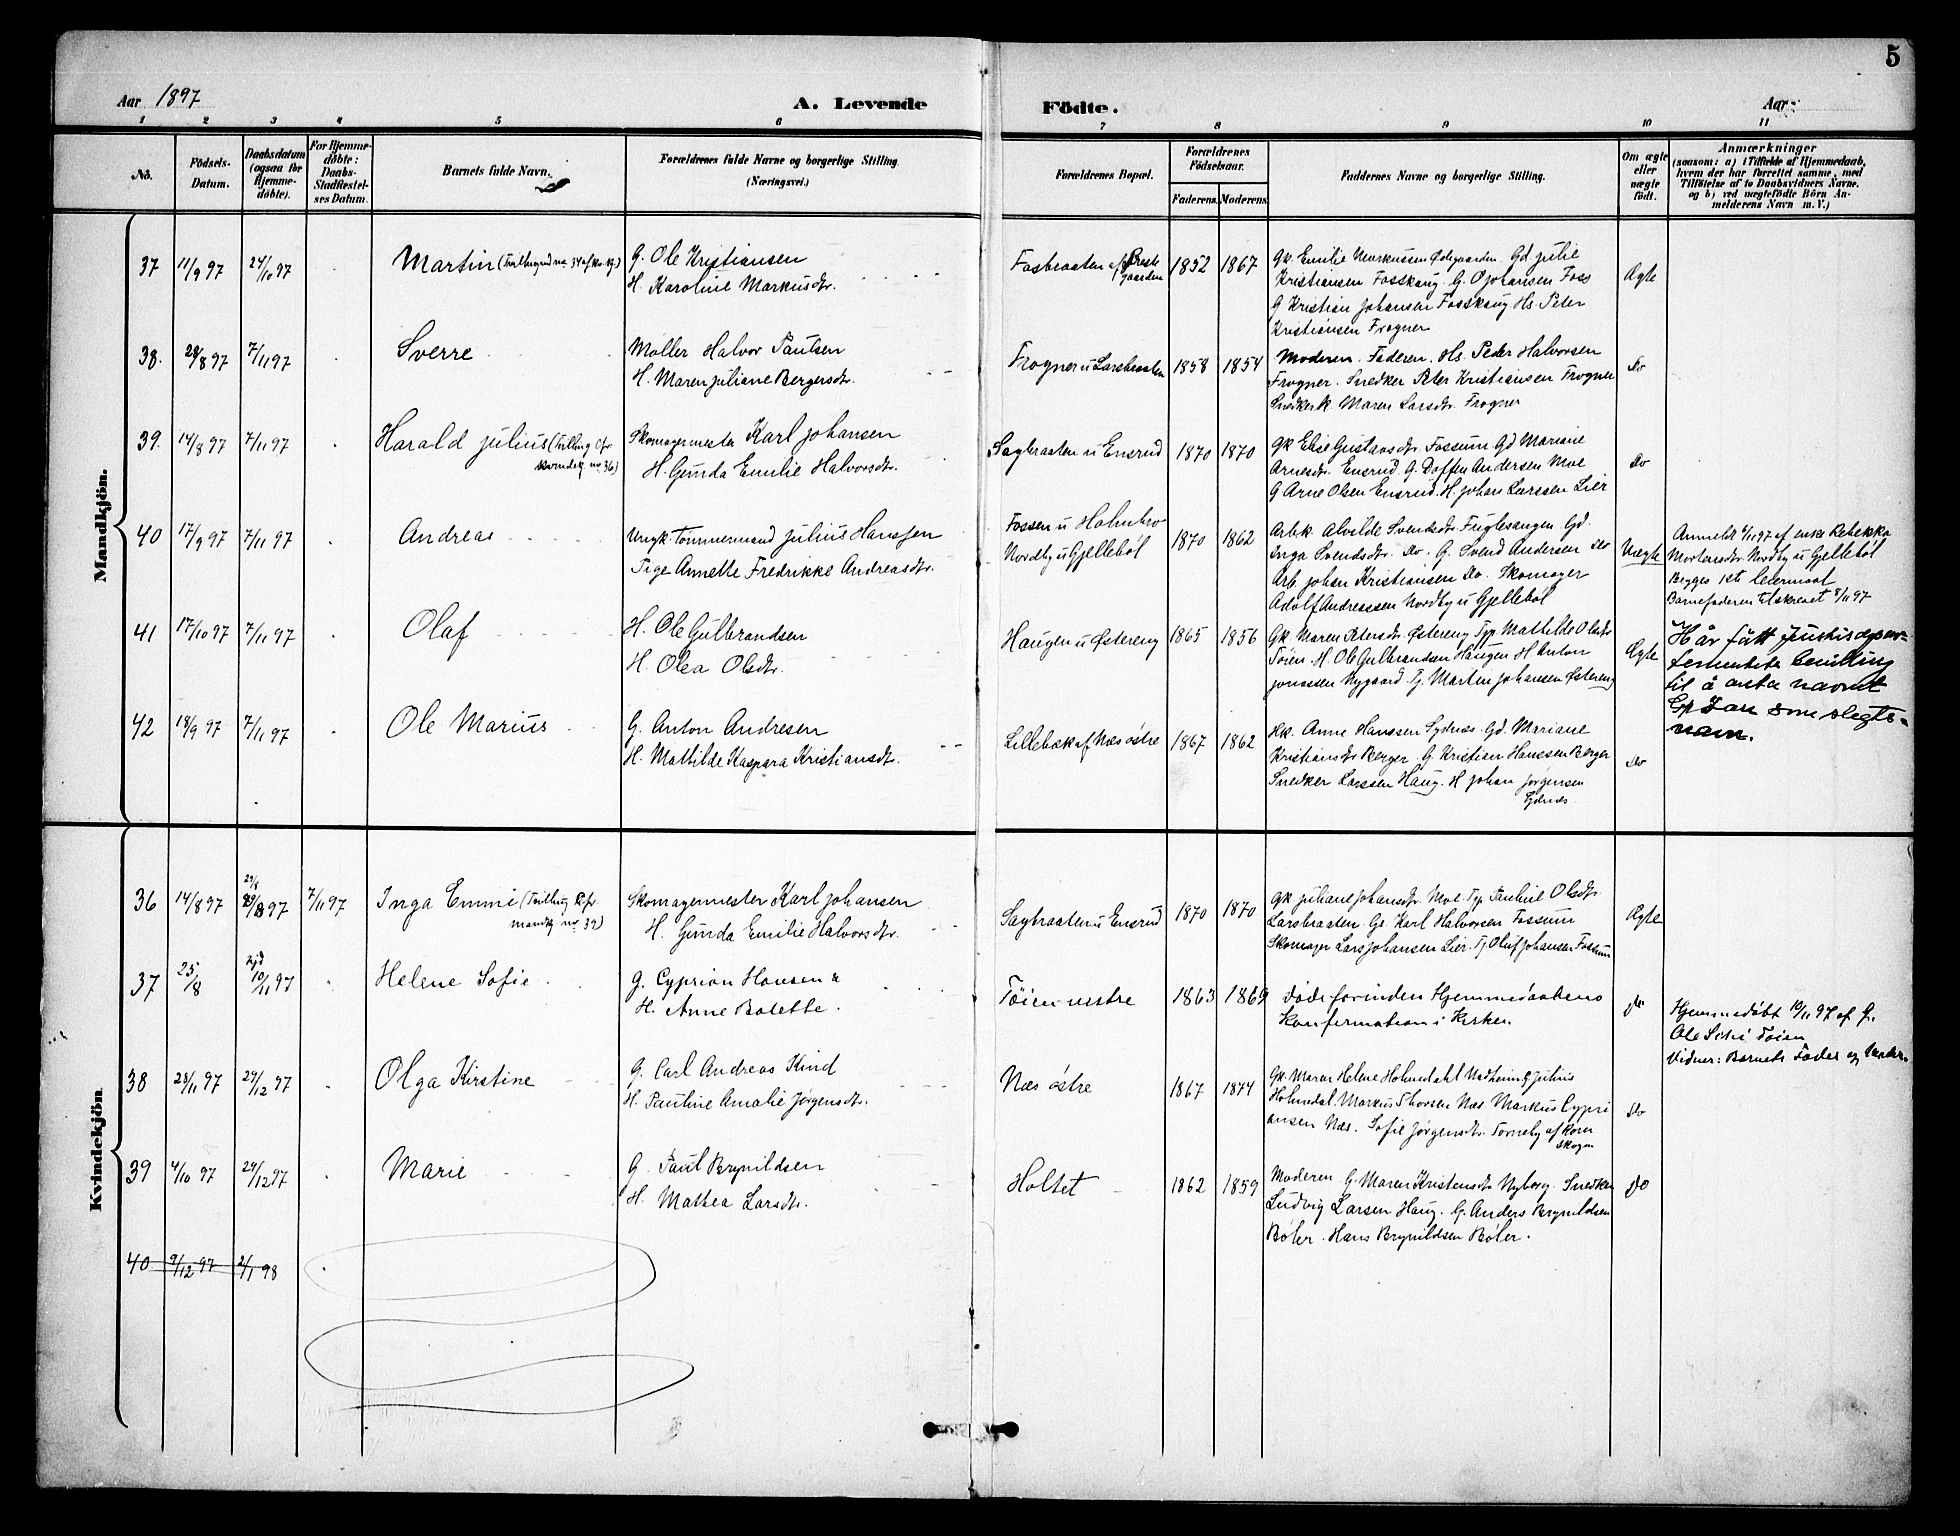 5
Aar 1897
A. Levende
Födte.
Aar
1 2 3 4 5 6 7 8 9 10 11
No.
Födsels-
Datum.
Daabsdatum
(ogsaa for
Hjemme-
döbte).
For Hjemme-
döbte:
Daabs-
Stadfæstel-
ses Datum.
Barnets fulde Navn.
Forældrenes fulde Navne og borgerlige Stilling.
(Næringsvei.)
Forældrenes Bopæl.
Forældrenes
Födselsaar.
Faderens.
Moderens.
Faddernes Navne og borgerlige Stilling.
Om ægte
eller
uægte
födt.
Anmærkninger
(saasom: a) i Tilfælde af Hjemmedaab,
hvem der har forrettet samme, med
Tilföielse af to Daabsvidners Navne,
og b) ved uægtefödte Börn An-
melderens Navn m. V.)
Mandkjön.
37 11/9 97 24/10 97 Martin (Tvillingmd no 34 af Kv. kj.)
G. Ole Kristiansen
H. Karoline Markusdtr.
Fosbraaten af Preste
gaarden
1852 1867
Gk. Emilie Markussen Ødegaarden. Gd Julie
Kristiansen Fosskaug. G. O Johansen Foss
G Kristian Johansen Fosskaug Hs. Peter
Kristiansen Frogner
Ægte
38. 28/8 97 7/11 97 Sverre
Møller Halvor Paulsen
H. Maren Juliane Bergersdtr.
Frogner u Larsbraaten 1858 1854
Moderen. Faderen. Hs. Peder Halvorsen
Frogner. Snedker Peter Kristiansen Frogner
Snedkerk. Maren Larsdtr. Frogner
Do
39. 14/8 97 7/11 97 Harald Julius (Tvilling cfr
kvindekj no 36)
Skomagermester Karl Johansen
H. Gunda Emilie Halvorsdtr.
Sagbraaten u Ensrud 1870 1870
Gk Elise Gustavsdtr Fossum Gd Mariane
Arnesdtr. Ensrud G. Doffen Andersen Moe
G Arne Olsen Ensrud. H. Johan Larssen Lier
Do
40 17/9 97 7/11 97 Andreas
Ungk. Tømmermand Julius Hanssen
Pige Annette Fredrikke Andreasdtr.
Fossen u Holmbro
Nordby u Gjellebøl
1870 1862
Arbk Alvilde Svendsdtr Fuglesangen Gd.
Inga Svendsdtr. Do. G. Svend Andersen Do
Arb. Johan Kristiansen Do. Skomager
Adolf Andreassen Nordby u Gjellebøl
Uægte
Anmeldt 6/11 97 af enke Rebekka
Mortensdtr. Nordby u Gjellebøl
Begges 1ste Leiermaal
Barnefaderen tilskrevet 8/11 97
41 17/10 97 7/11 97 Olaf
H. Ole Gulbrandsen
H. Olea Olsdtr.
Haugen u Østereng 1865 1856
Gk. Maren Petersdtr. Østereng Tjp. Mathilde Olsdtr
Tøien. H. Ole Gulbrandsen Haugen H Anton
Jonassen Nygaard Tj. Martin Johansen Østereng
Ægte
Har fått Justisdepar-
tementets bevilling
til å anta navnet
som slegts-
navn.
42 18/9 97 7/11 97 Ole Marius
G. Anton Andresen
H. Mathilde Kaspara Kristiansdtr.
Lillebæk af Næs østre 1867 1862
Hk. Anne Hanssen Sydnes. Gd. Mariane
Kristiansdtr Berger. G Kristian Hanssen Berger
Snedker Larssen Haug. H Johan Jørgensen
Sydnes
Do
Kvindekjön
36 14/8 97 29/8 97 7/11 97 Inga Emmi (Tvilling cfr
mandkj no 39)
Skomagermester Karl Johansen
H. Gunda Emilie Halvorsdtr.
Sagbraaten u Ensrud 1870 1870
Gk Juliane Johansdtr. Moe. Tjp. Pauline Olsdtr
Larsbraaten Gs. Karl Halvorsen Fossum
Skomager Lars Johansen Lier. Tj Oluf Johansen Fossum
Ægte
37 25/8 hjd 10/11 97 Helene Sofie
G. Cyprian Hansen &
H. Anne Bolette.
Tøien vestre 1863 1869
Døde forinden Hjemmedaabens
Konfirmation i Kirken.
do
Hjemmedøbt 10/11 97 af G.
Ole Tøien
Vidner: Barnets Fader og
38 23/11 97 29/12 97 Olga Kirstine
G. Carl Andreas Kind
H. Pauline Amalie Jørgensdtr.
Næs østre 1867 1874
Gk. Maren Helene Holmdahl Julius
Holmdal Markus Thorsen Næs. Markus Cypri
ansen Næs. Sofie Jørgensdtr. Torneby af
Skogen
Do
39 4/10 97 29/12 97 Marie
G. Paul Brynildsen
H. Mathea Larsdtr.
Holtet 1862 1859
Moderen G. Maren Kristensdtr Nyberg. Snedker
Ludvig Larsen Haug. G. Anders Brynildsen
Bøler. Hans Brynildsen Bøler.
Do
40 9/12 97 2/1 98